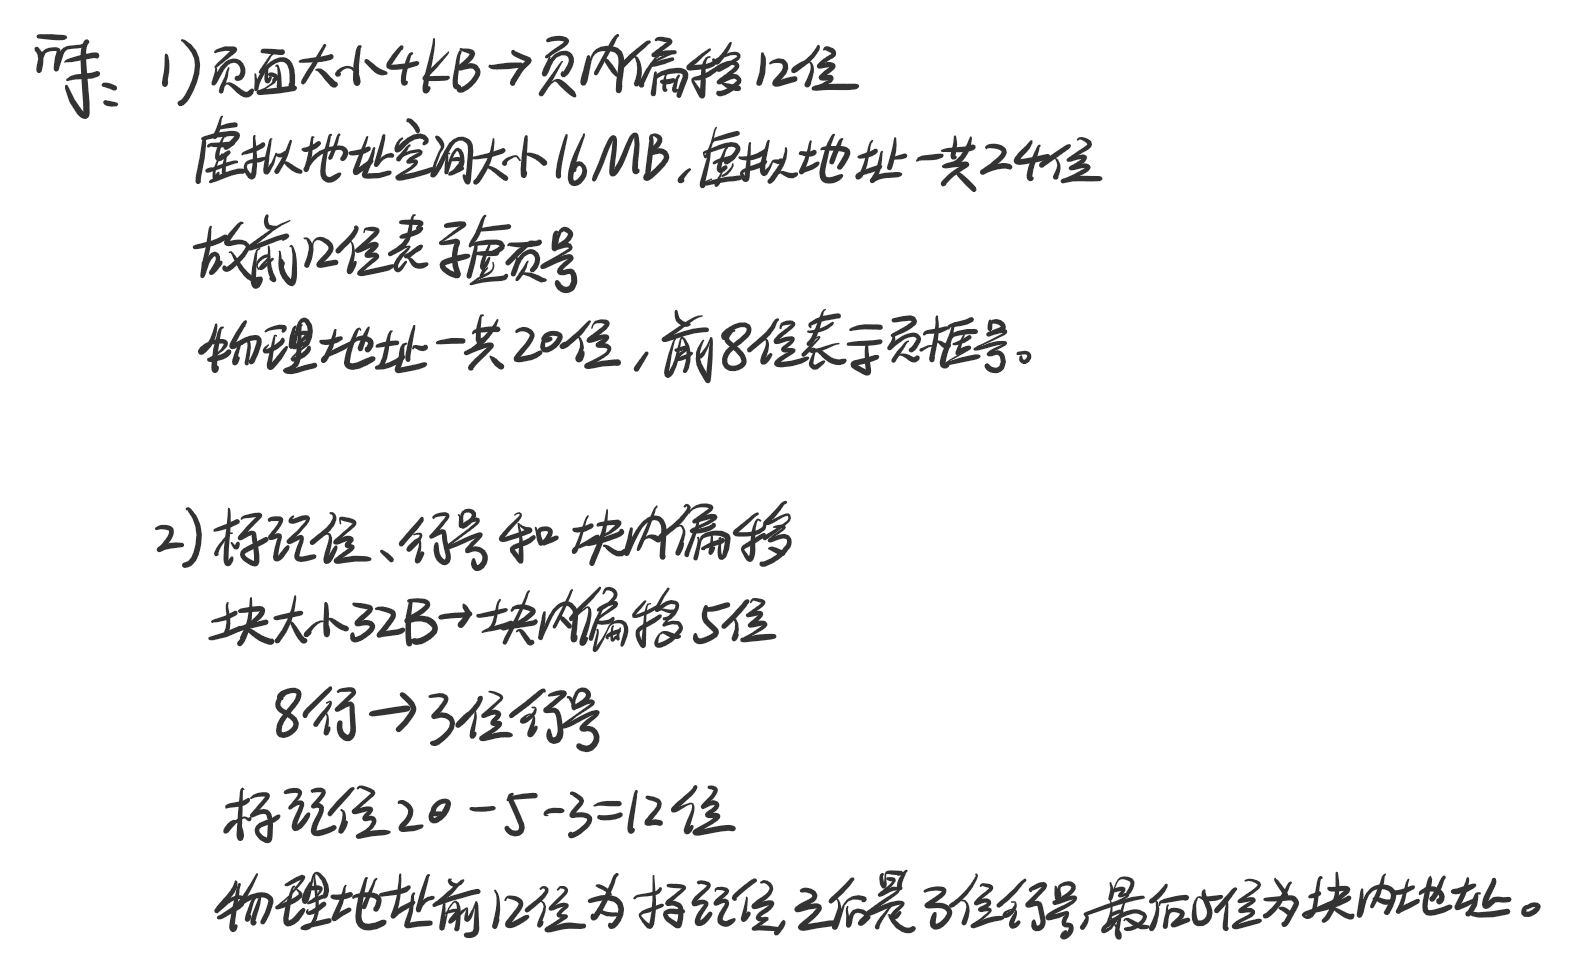 解: 1)页面大小4KB→页内偏移12位
虚拟地址空间大小16MB,虚拟地址一共24位
故前12位表示虚页号
物理地址一共20位,前8位表示页框号。
2)标记位、行号和块内偏移
块大小32B→块内偏移5位
8行→3位行号
标记位20-5-3=12位
物理地址前12位为标记位,之后是3位行号,最后5位为块内地址。